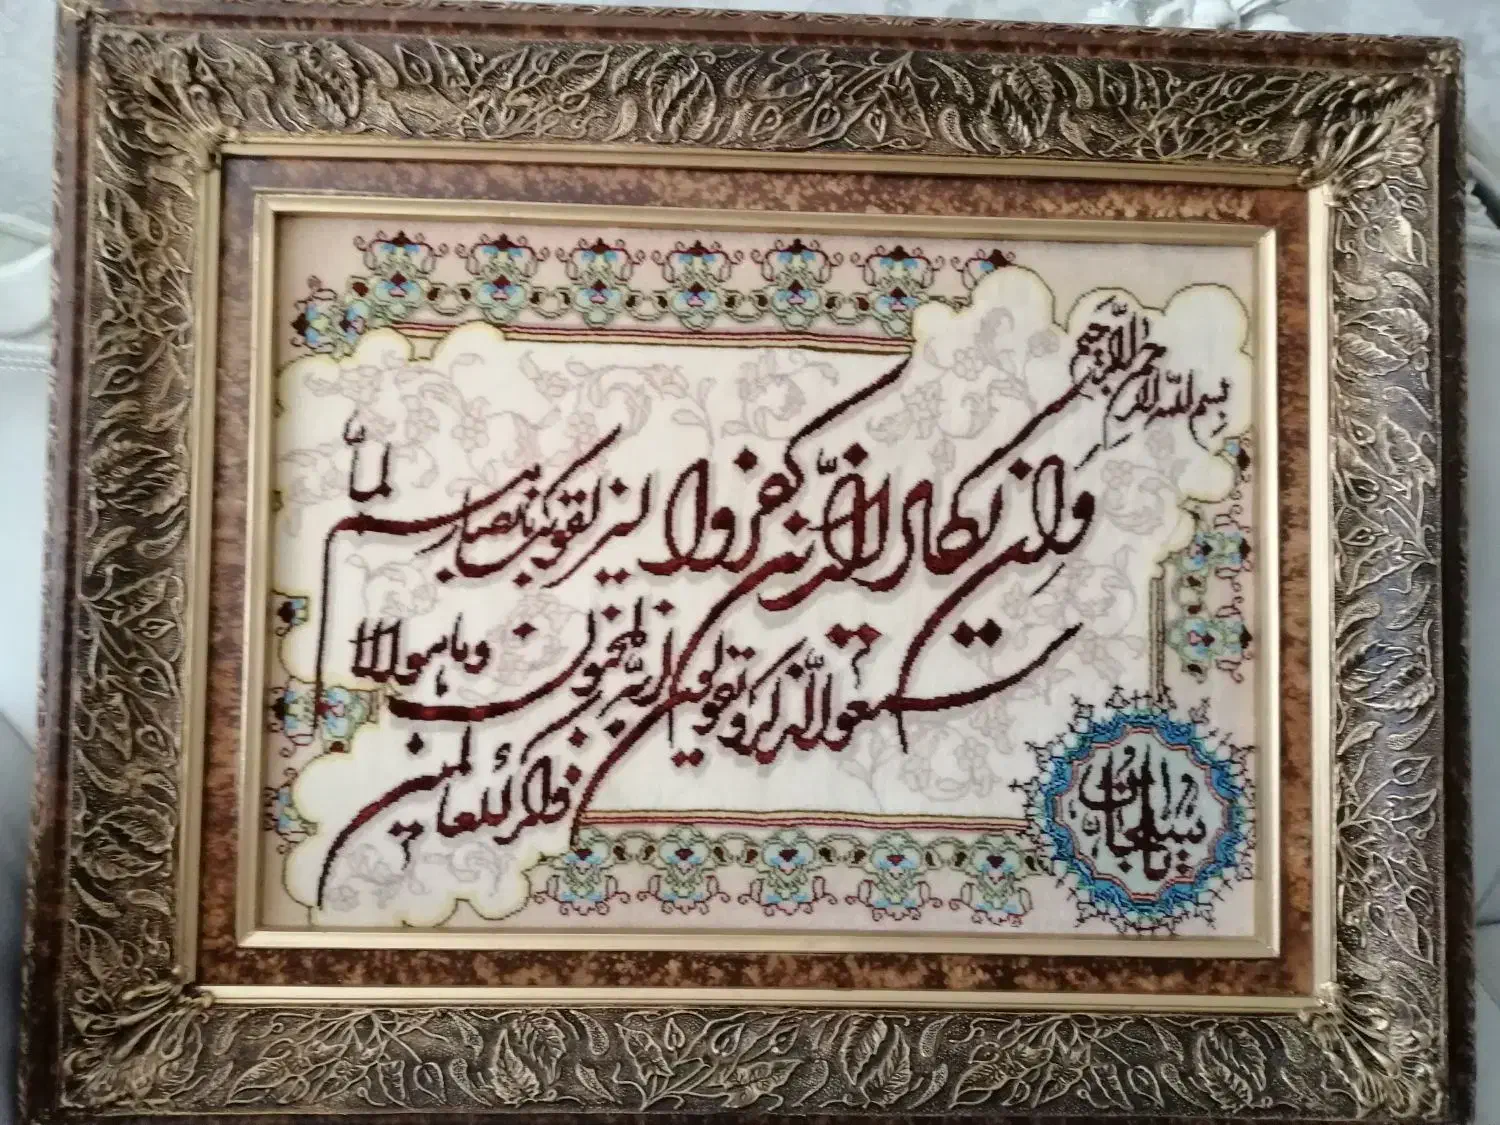 بسم الله الرحمن الرحیم
وَإِن یکاد الّذین کفروا لیزلقونک بابصارهم لمّا
سمعوا الّذکر و یقولون انّه لمجنون و ما هو الّا
ذکر للعالمین